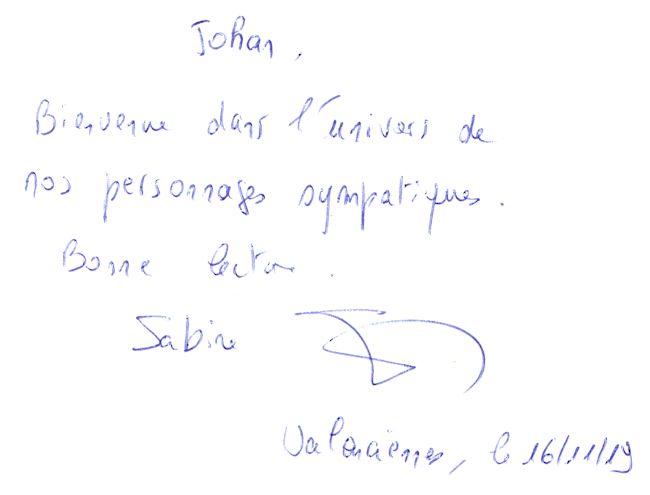 Johan,
Bienvenue dans l'univers de
nos personnages sympatiques.
Bonne lecture.
Sabine
Valenciennes, le 16/11/19